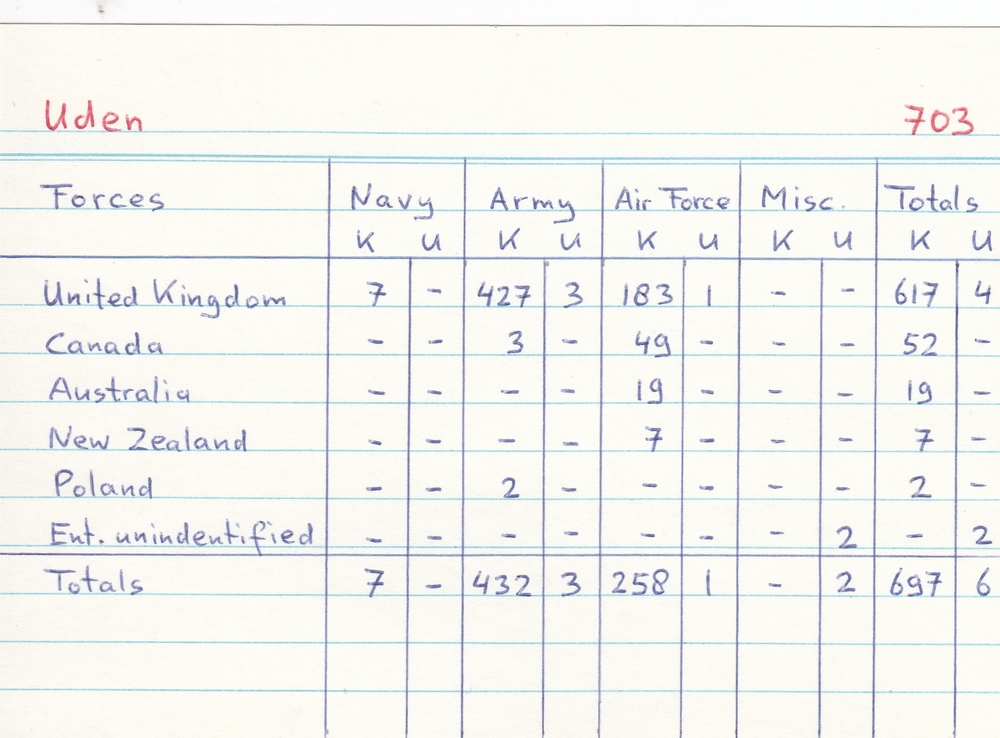 Uden 703
Forces Navy Army Air Force Misc. Totals
K U K U K U K U K U
United Kingdom 7 - 427 3 183 1 - - 617 4
Canada - - 3 - 49 - - - 52 -
Australia - - - - 19 - - - 19 -
New Zealand - - - - 7 - - - 7 -
Poland - - 2 - - - - - 2 -
Ent. unindentified - - - - - - - 2 - 2
Totals 7 - 432 3 258 1 - 2 697 6